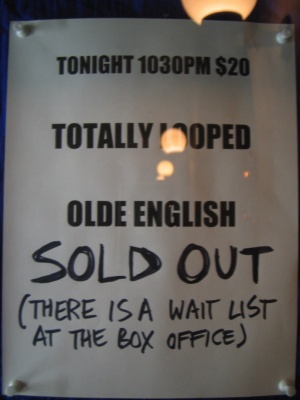 TONIGHT 1030PM $20
TOTALLY LOOPED
OLDE ENGLISH
SOLD OUT
(THERE IS A WAIT LIST
AT THE BOX OFFICE)